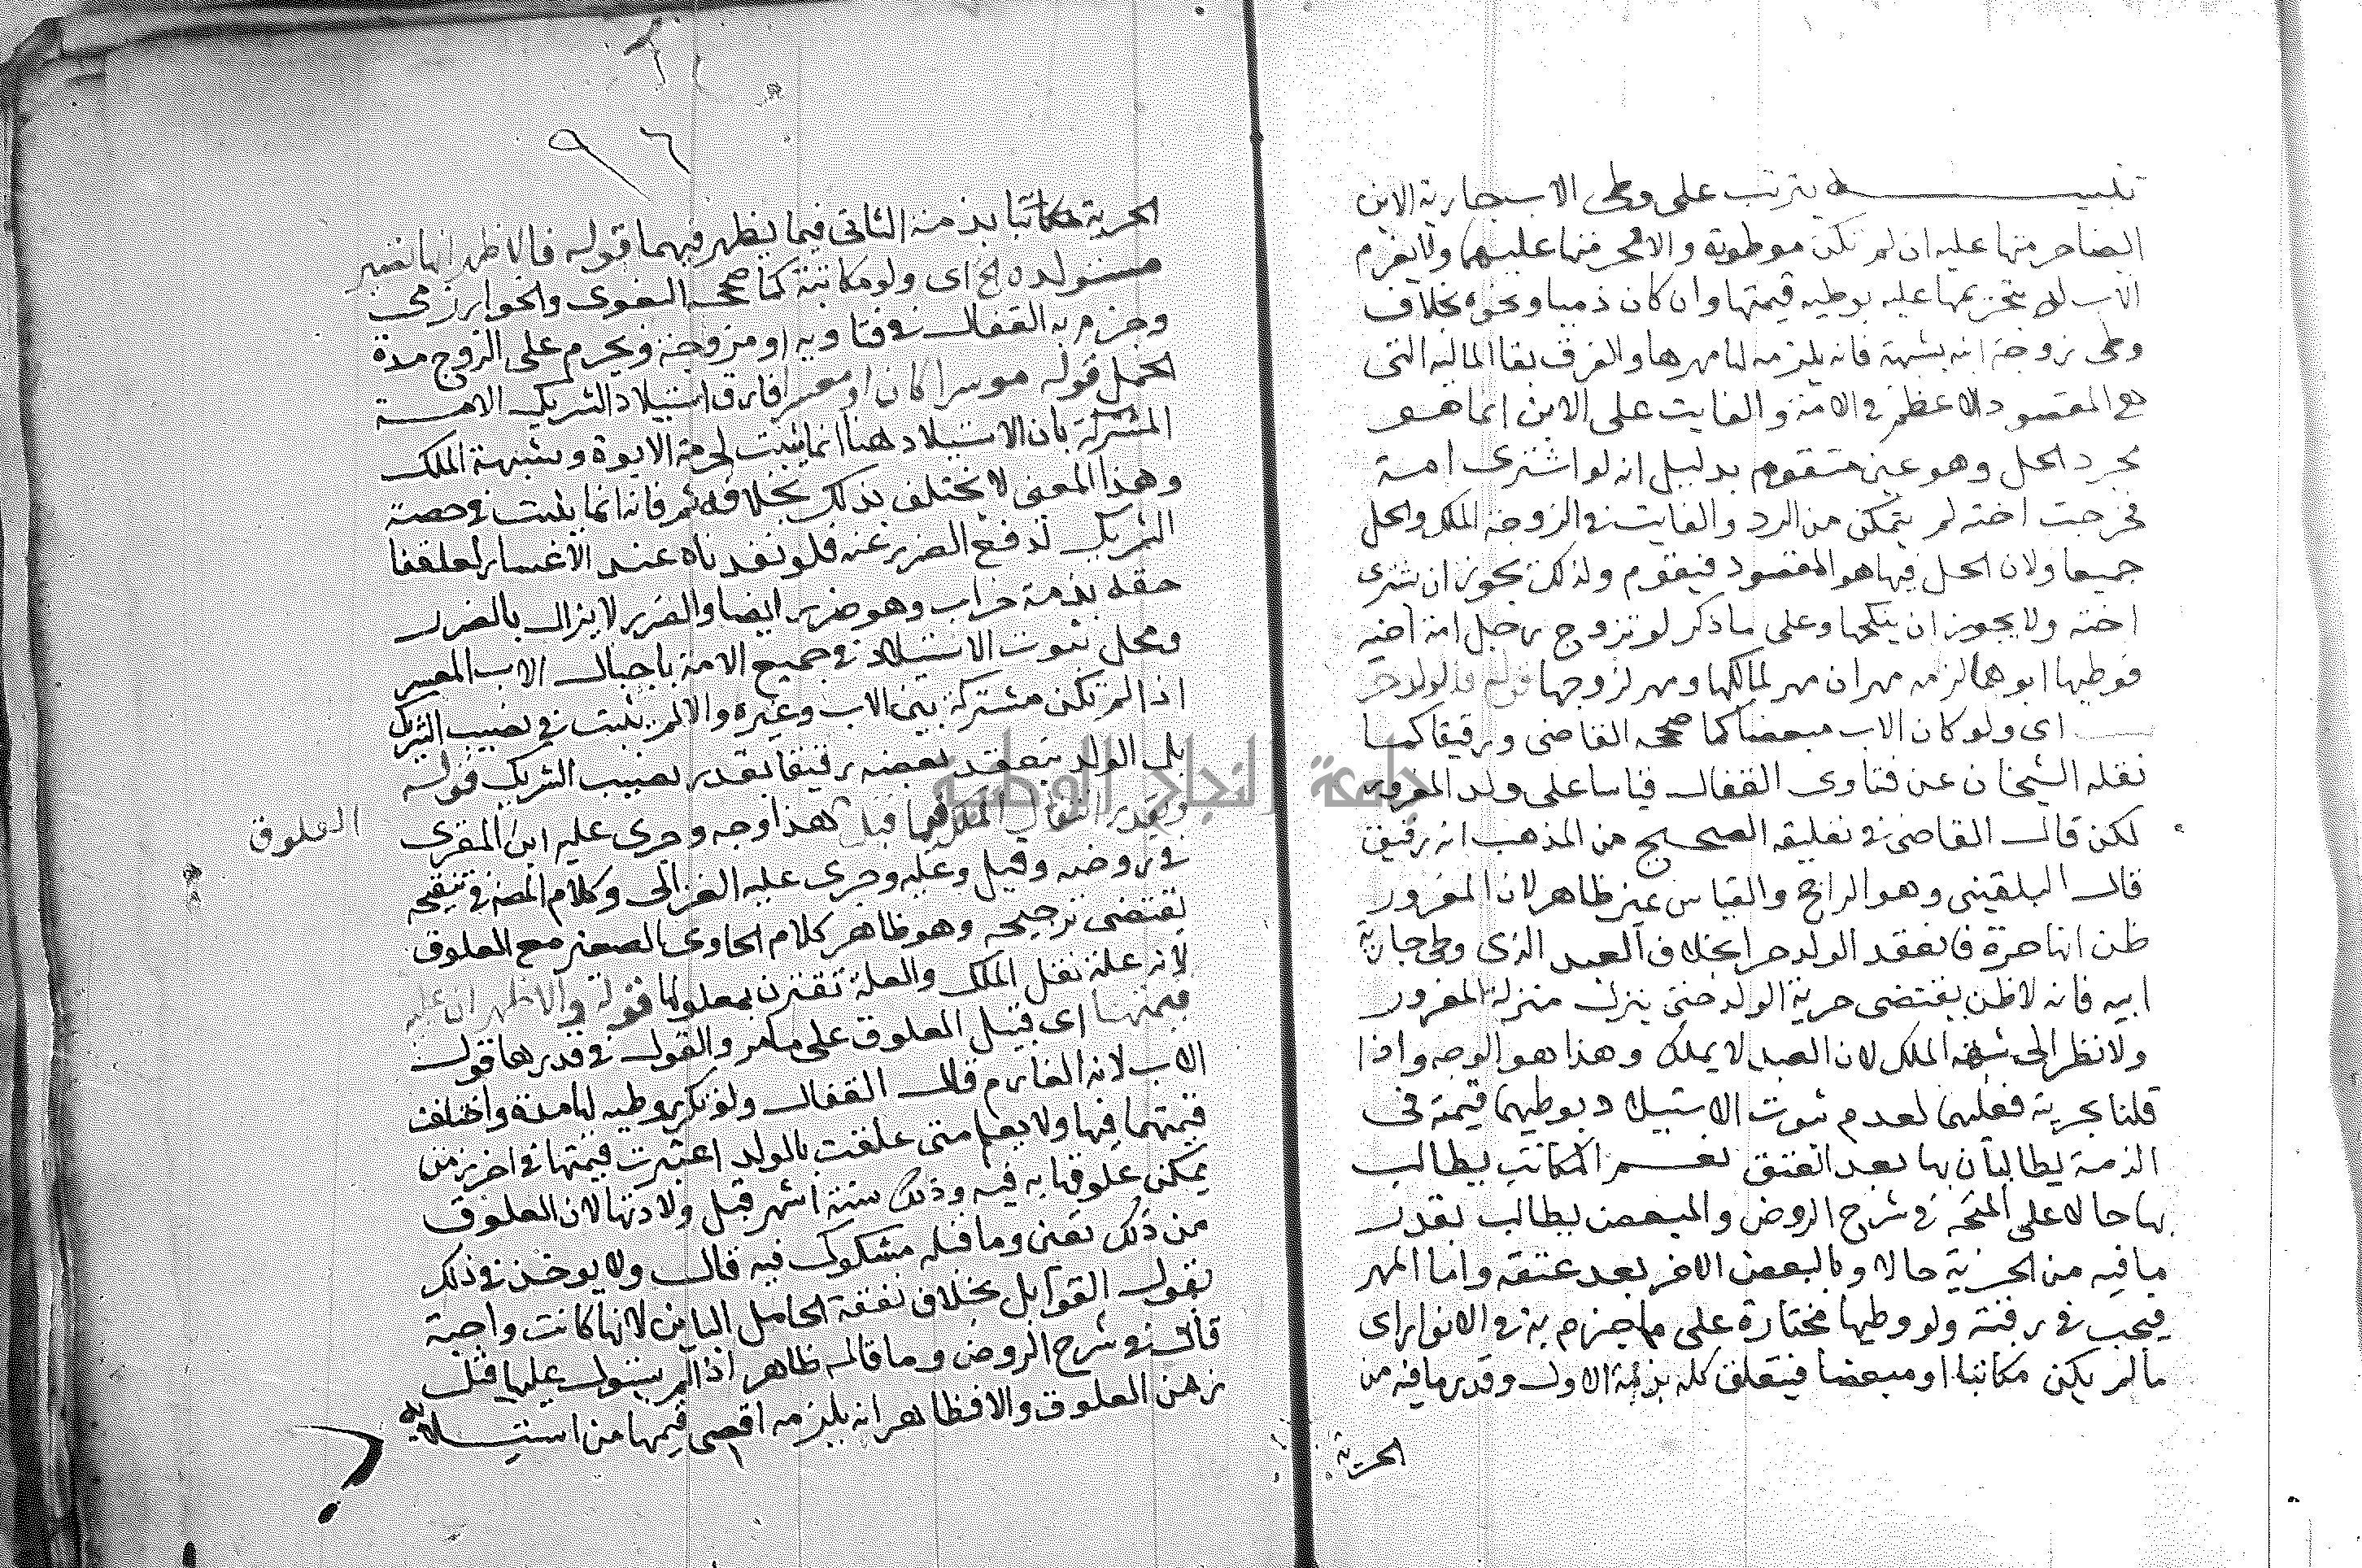 تنبيه يترتب على وطى الاب جارية الابن
ايضا حرمتها عليه ان لم تكن موطوته والا فحرمتها عليهما ولا يغرم
الاب له بتحريمها عليه بوطيه قيمتها وان كان ذميا ونحوه بخلاف
وطى زوجة ابنه بشبهة فانه يلزمه لها مهرها والفرق بقا المالية التى
هى المقصود الاعظم فى الامة والفايت على الابن انما هو
مجرد الحل وهو غير متقوم بدليل انه لو اشترى امة
فخرجت اخته لم يتمكن من الرد والفايت فى الزوجة الملك والحل
جميعا ولان الحل فيها هو المقصود فيقوم ولذلك يجوز ان يشترى
اخته ولا يجوز ان ينكحها وعلى ما ذكر لو تزوج رجل امة اخيه
فوطيها ابوهما لزمه مهران مهر لمالكها ومهر لزوجها قوله فالولد حر
اى ولو كان الاب مبعضا كما صححه القاضى ورقيقا كما
نقله الشيخان عن فتاوى القفال قياسا على ولد المغرور
لكن قال القاضى فى تعليقه الصحيح من المذهب انه رقيق
قال البلقينى وهو الراجح والقياس غير ظاهر لان المغرور
ظن انها حرة فانعقد الولد حرا بخلاف العبد الذى وطى جارية
ابيه فانه لا ظن يقتضى حرية الولد حتى ينزل منزلة المغرور
ولا نظر الى شبهة الملك لان العبد لا يملك وهذا هو الوجه واذا
قلنا بحرية فعليهما لعدم ثبوت الاستيلاد بوطيهما قيمة فى
الذمة يطالبان بها بعد العتق نعم المكاتب يطالب
بها حالا على المتجه فى شرح الروض والمبعض يطالب بقدر
ما فيه من الحرية حالا وبالبعض الاخر بعد عتقه واما المهر
فيجب فى رقبته ولو وطيها مختارة على ما جزم به فى الانوار اى
ما لم يكن مكاتبا او مبعضا فيتعلق كله بذمة الاول وقدر ما فيه من
الحرية
٩٦
الحرية مكاتبا بذمة الثانى فيما يظهر فيهما قوله فالاظهر انها تصير
مستولدة له اى ولو مكاتبة كما صححه البغوى والخوارزمى
وجزم به القفال فى فتاويه او مزوجة ويحرم على الزوج مدة
الحمل قوله موسرا كان او معسرا فارق استيلاد الشريك الامة
المشتركة بان الاستيلاد هنا انما يثبت لحرمة الابوة وشبهة الملك
وهذا المعنى لا يختلف بذلك بخلافه ثم فانه انما يثبت فى حصة
الشريك لدفع الضرر عنه فلو نفدناه عند الاعسار لعلقنا
حقه بذمة خراب وهو ضرر ايضا والضرر لا يزال بالضرر
ومحل ثبوت الاستيلاد فى جميع الامة باحبال الاب المعسر
اذا لم تكن مشتركة بين الاب وغيره والا لم يثبت فى نصيب الشريك
بل الولد ينعقد بعضه رقيقا بقدر نصيب الشريك قوله
ويقدر انتقال الملك فيها قبل هذا وجه وجرى عليه ابن المقرى
العلوق
فى روضه وقيل وعليه وجرى عليه الغزالى وكلام المص فى تنقيحه
يقتضى ترجيحه وهو ظاهر كلام الحاوى الصغير مع العلوق
لانه علة نقل الملك والعلة تقترن بمعلولها قوله والاظهر ان عليه
قيمتها اى قبيل العلوق على ما مر والقول فى قدرها قول
الاب لانه الغارم قال القفال ولو تكرر وطيه لها مدة واختلف
قيمتهما فيها ولا يعلم متى علقت بالولد اعتبرت قيمتها فى اخر زمن
يمكن علوقها به فيه وذلك ستة اشهر قبل ولادتها لان العلوق
من ذلك يقين وما قبله مشكوك فيه قال ولا يوخذ فى ذلك
بقول القوابل بخلاف نفقة الحامل الباين لانها كانت واجبة
قال فى شرح الروض وما قاله ظاهر اذا لم يستول عليها قبل
زمن العلوق والا فظاهر انه يلزمه اقصى قيمها من استيلايه
جامعة النجاح الوطنية